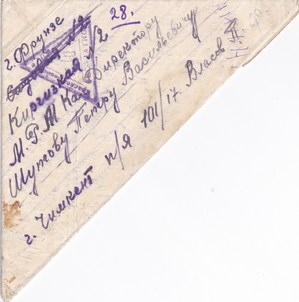 28.
г. Фрунзе
Киргизская 1/2
М. Р. М. Ка Директору
Шутову Петру Васильевичу
г. Чимкент п/я 101/17 Власов